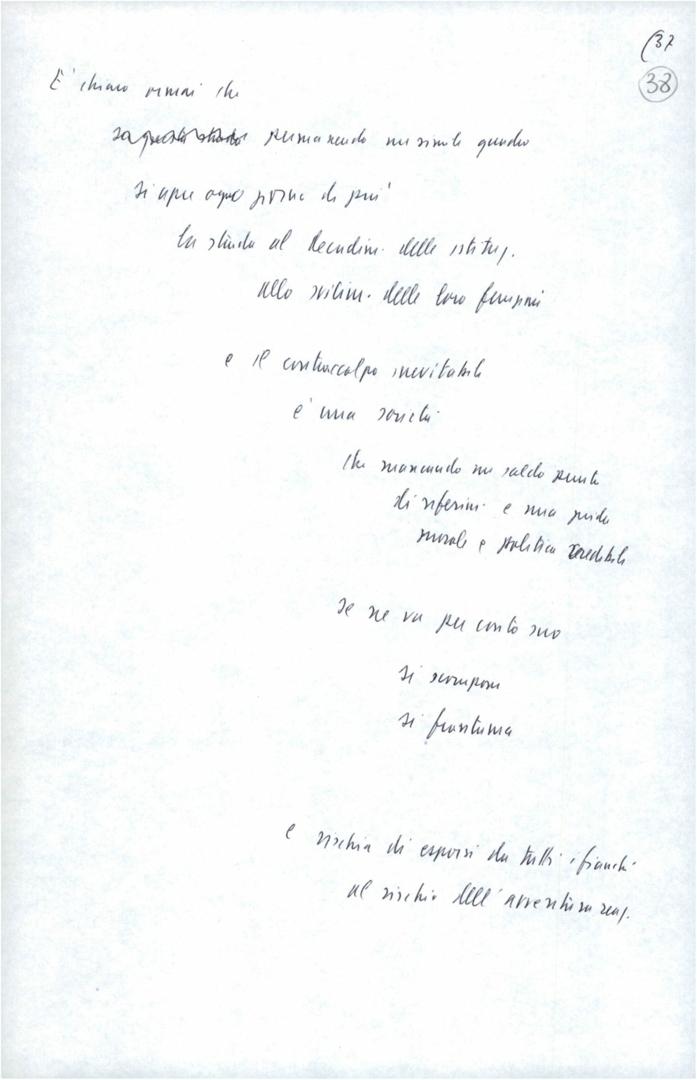 (37
38
E' chiaro ormai che
permanendo un simile quadro
si apre ogni giorno di più
la strada al decadim. delle istituz.
allo svilim. delle loro funzioni
e il contraccolpo inevitabile
è una società
che mancando un saldo punto
di riferim. e una guida
morale e politica credibile
se ne va per conto suo
si scompone
si frantuma
e rischia di esporsi da tutti i fianchi
al rischio dell'avventura reaz.